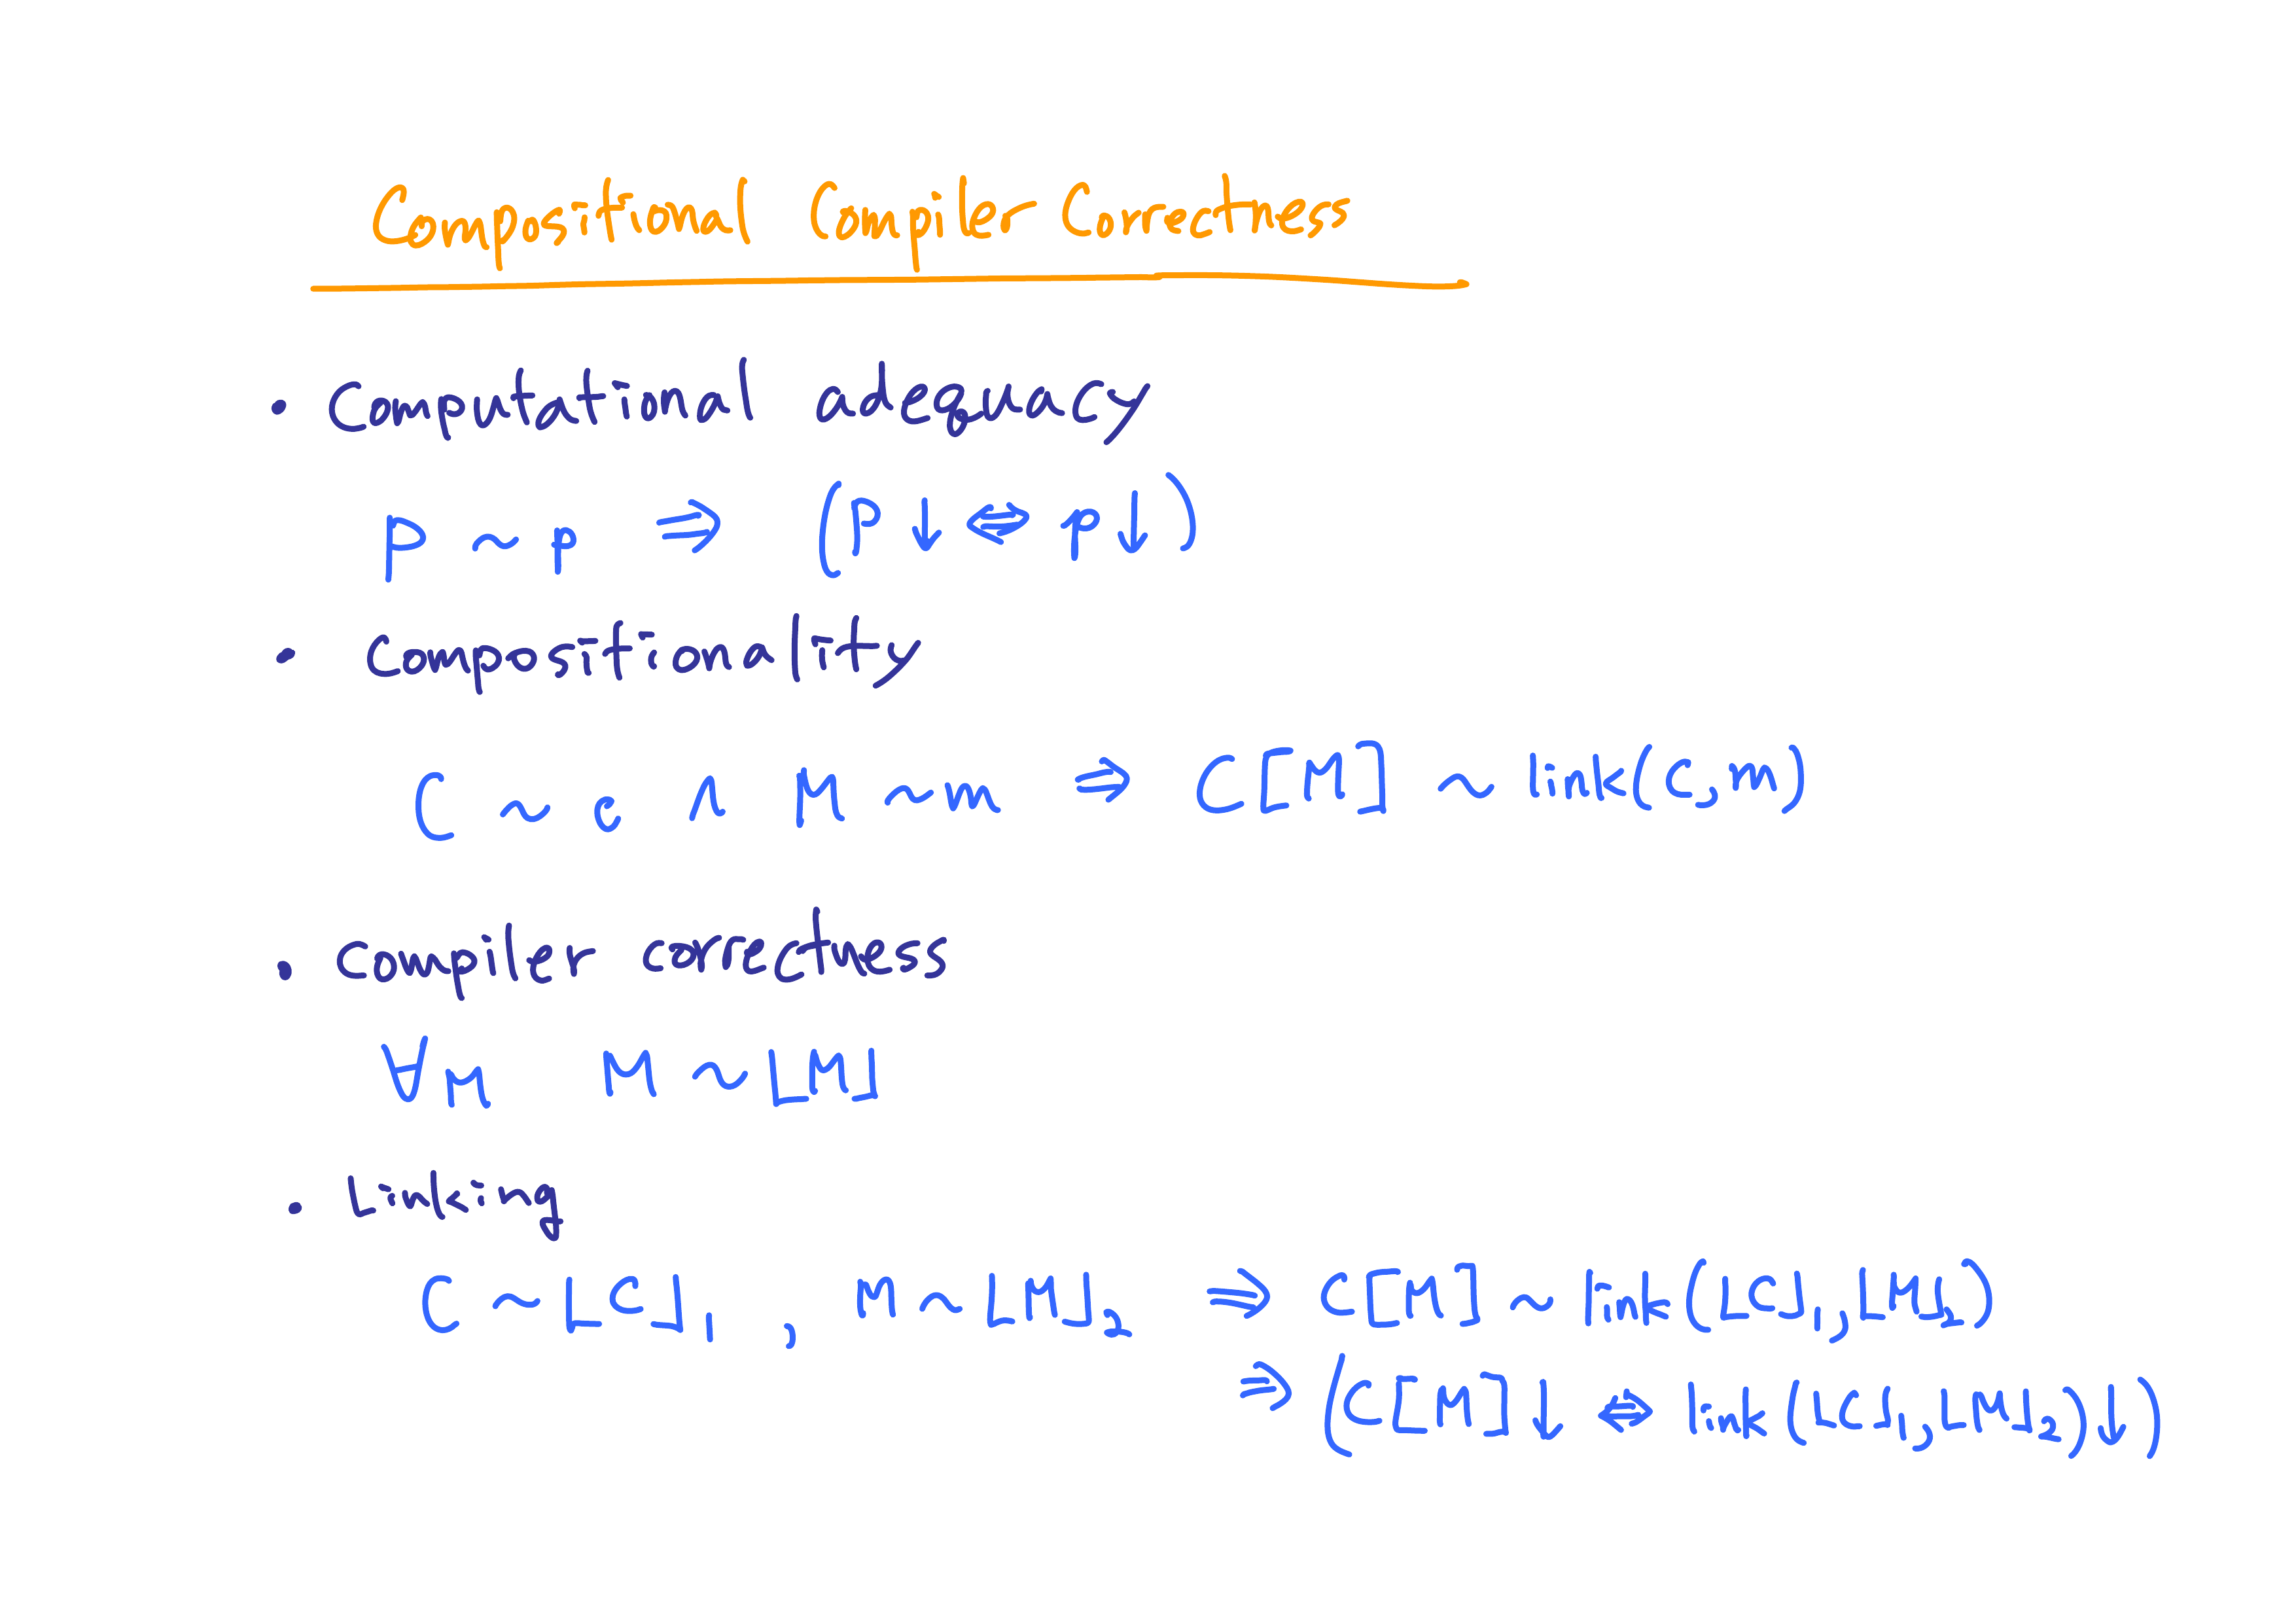 Compositional Compiler Correctness
• Computational adequacy
P ~ p ⇒ (P↓ ⇔ p↓)
• Compositionality
C ~ c ∧ M ~ m ⇒ C[M] ~ link(c,m)
• Compiler correctness
∀M M ~ ⌊M⌋
• Linking
C ~ ⌊C⌋₁ , M ~ ⌊M⌋₂ ⇒ C[M] ~ link(⌊C⌋₁,⌊M⌋₂)
⇒ (C[M]↓ ⇔ link(⌊C⌋₁,⌊M⌋₂)↓)